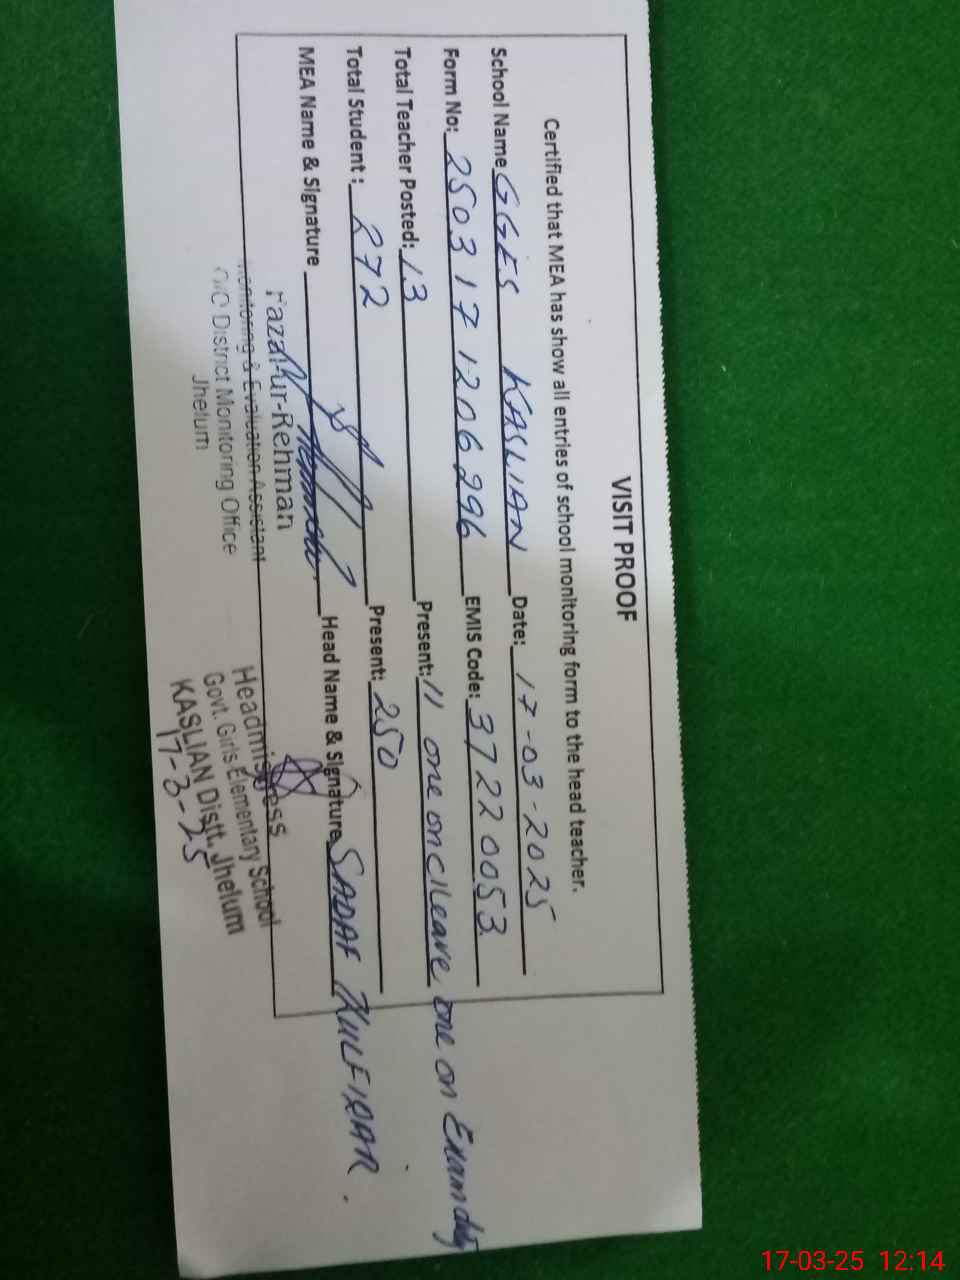 VISIT PROOF
Certified that MEA has show all entries of school monitoring form to the head teacher.
School Name GGES KASLIAN Date: 17-03-2025
Form No: 250317 1206296 EMIS Code: 37220053
Total Teacher Posted: 13 Present: 11 one on c/leave one on Exam duty
Total Student : 272 Present: 250
MEA Name & Signature Head Name & Signature SADAF ZULFIQAR.
Fazal-ur-Rehman
Monitoring & Evaluation Assistant
O/O District Monitoring Office
Jhelum
Headmistress
Govt. Girls Elementary School
KASLIAN Distt. Jhelum
17-3-25
17-03-25 12:14